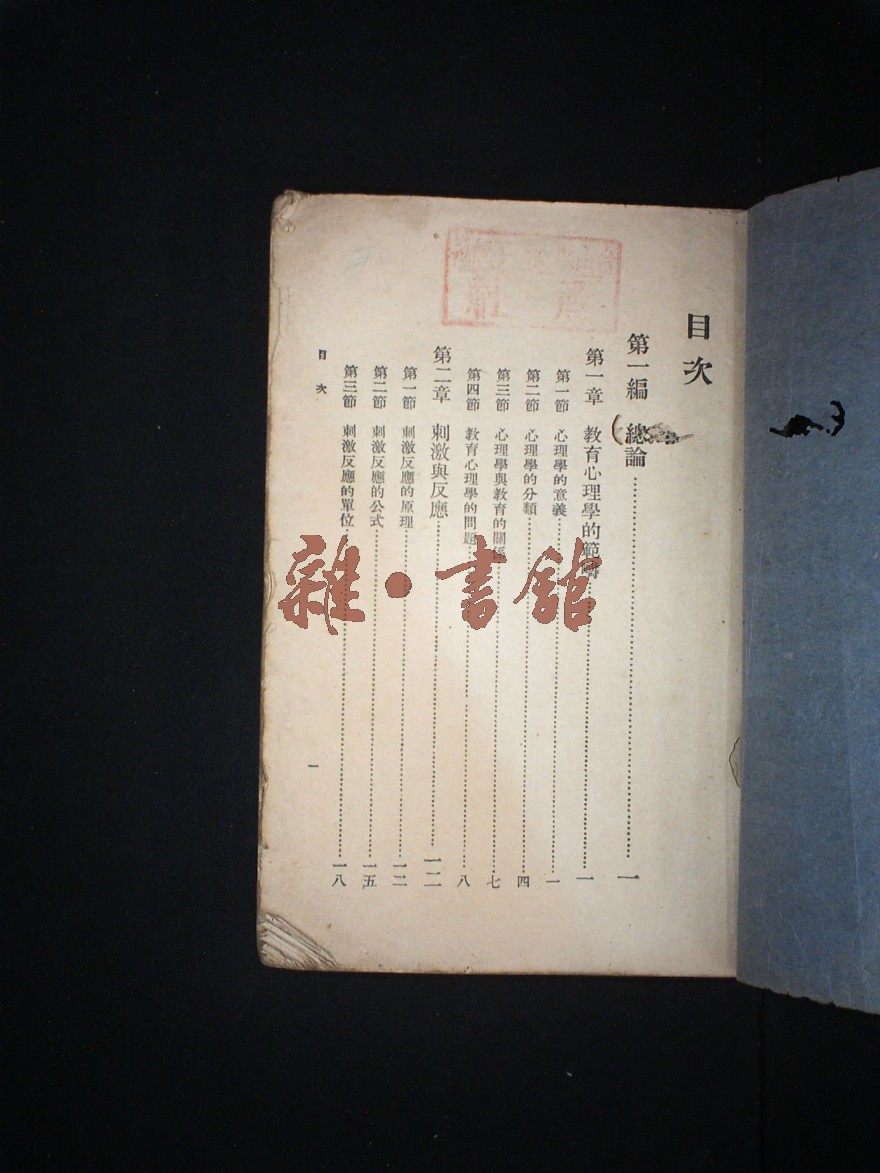 目次
第一編　總論……一
第一章　教育心理學的範疇……一
第一節　心理學的意義……一
第二節　心理學的分類……四
第三節　心理學與教育的關係……七
第四節　教育心理學的問題……八
第二章　刺激與反應……一二
第一節　刺激反應的原理……一二
第二節　刺激反應的公式……一五
第三節　刺激反應的單位……一八
目次
一
雜·書館